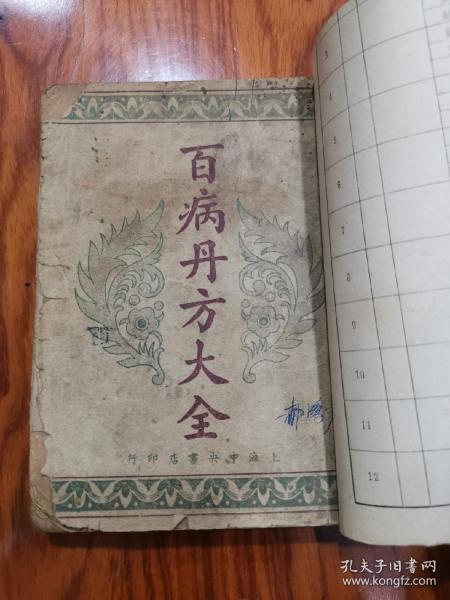 百病丹方大全
上海中央書店印行
3
4
5
6
7
8
9
10
11
12
孔夫子旧书网
www.kongfz.com